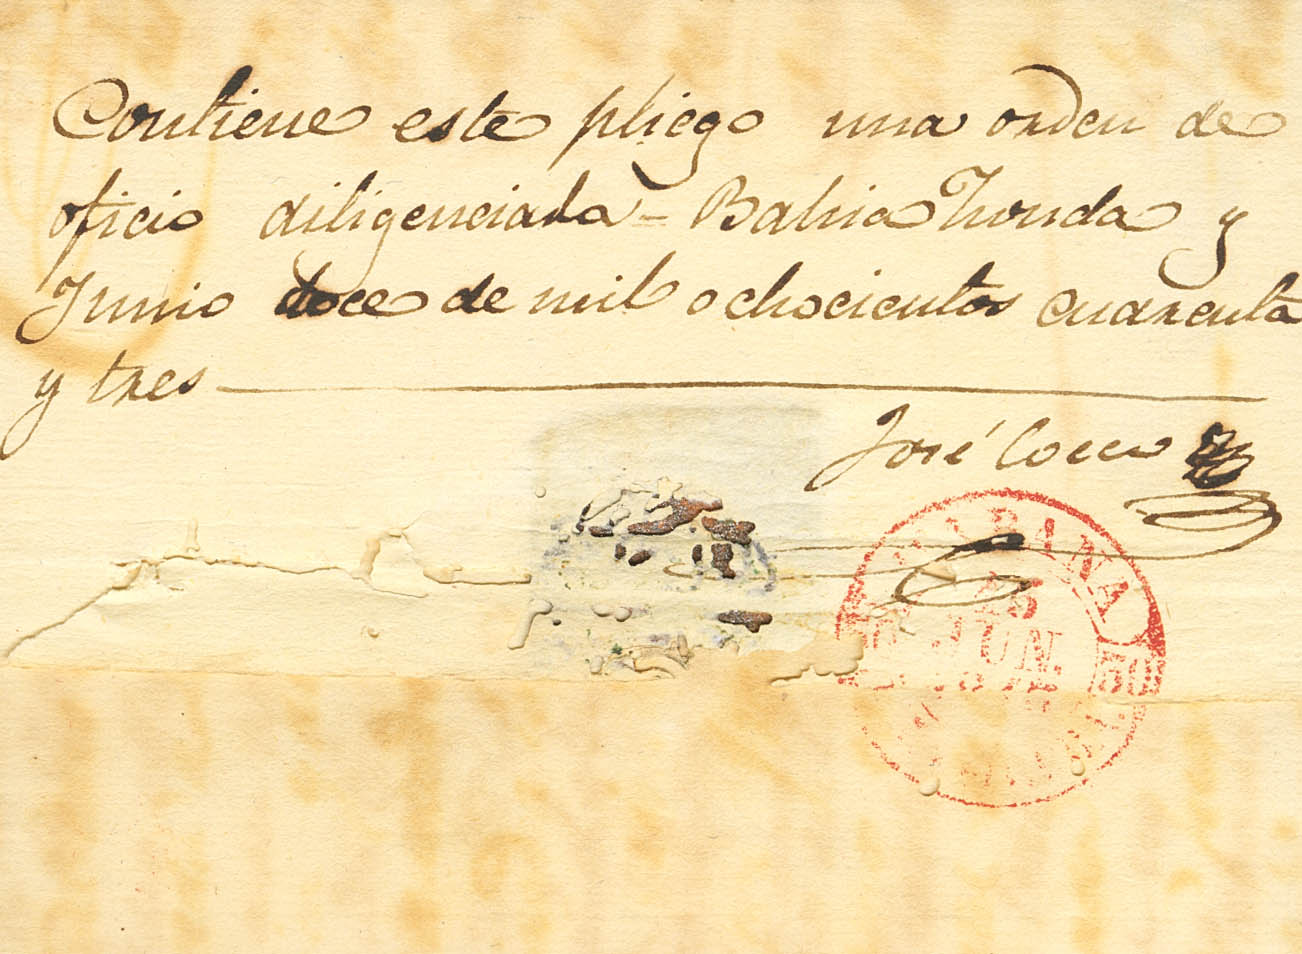 Contiene este pliego una orden de
oficio diligenciada = Bahia honda y
Junio doce de mil ochocientos cuarenta
y tres
José
HABANA
JUN.